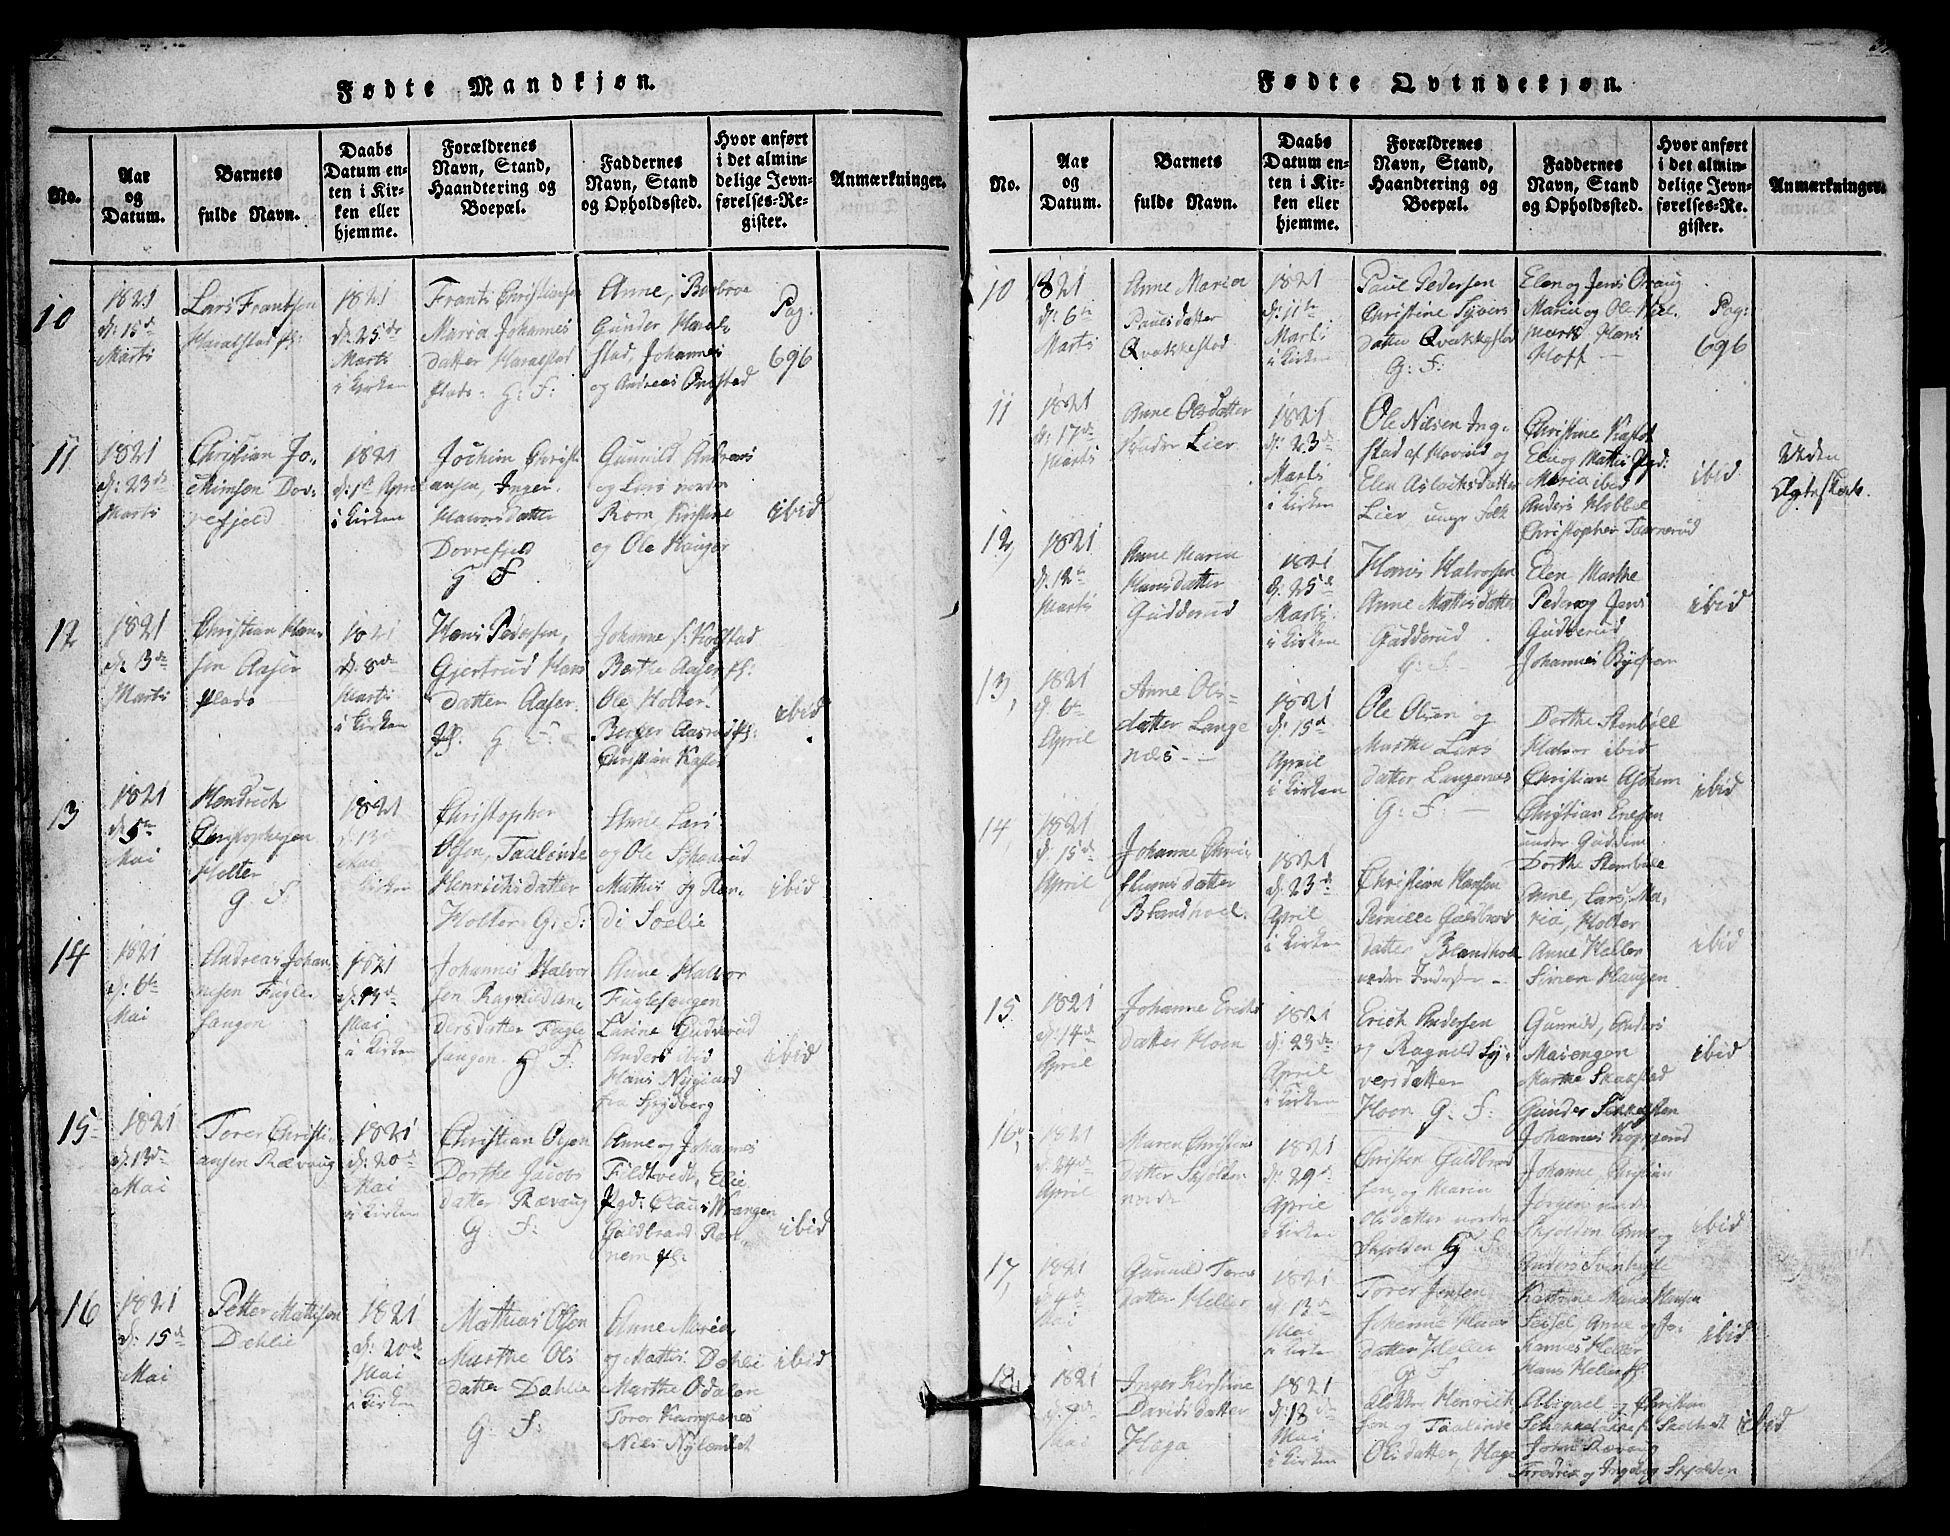 Fødte Mandkjøn.
No.
Aar
og
Datum.
Barnets
fulde Navn.
Daabs
Datum en-
ten i Kir-
ken eller
hjemme.
Forældrenes
Navn, Stand,
Haandtering og
Boepæl.
Faddernes
Navn, Stand
og Opholdssted.
Hvor anført
i det almin-
delige Jevn-
førelses-Re-
gister.
Anmærkninger.
10
1821
d: 15de
Marts
Lars Frantsen
Haralstad
1821
d: 25de
Marts
i Kirken
Frants Christiansen
Maria Johannes
datter Haralstad
Plads. G: F:
Anne, Barbroe
Gunder Haral-
stad, Johannes
og Andreas
Pag:
696
11
1821
d: 23de
Marts
Christian Jo-
chimsen Dov-
refjeld
1821
d: 1ste April
i Kirken
Jochim Christi
ansen, Inger
Halvorsdatter
Dovrefjeld
G F
Gunnild Andreas
og Lars nordre
Kirstine
og Ole Hauger
ibid
12
1821
d. 13de
Marts
Christian Han-
sen Aaser
plads
1821
d. 8de
Marts
i Kirken
Hans Pedersen,
Gjertrud Hans
datter Aaser.
G: F:
Johanne
Berthe Aaser
Ole Holter.
Berger
Christian
ibid
13
1821
d. 5te
Mai
Hendrich
Christophersen
Holter
G F
1821
d 13de
Mai
Kirken
Christopher
Olsen, Taalende
Henrichsdatter
Holter G: F:
Anne Lars
og Ole
Mathis og Ran-
di Soelie
ibid
14
1821
d: 6te
Mai
Andreas Johan
nesen Fugle
sangen
1821
d: 13de
Mai
i Kirken
Johannes Halvor
sen Ragnild An
dersdatter Fugle
sangen. G F:
Anne Halvor
Fuglesangen
Larine Gudderud
Anders ibid
Hans Nygaard
fra Spydberg
ibid
15
1821
d: 13de
Mai
Torer Christi-
ansen Rævaug
1821
d: 20de
Mai
i Kirken
Christian Olsen
Dorthe Jacobs
datter Rævaug
G: F:
Anne og Johannes
Fieldtvedt, Elie
Pgd: Claus Wrangen
Guldbrand
ibid
16
1821
d: 15de
Mai
Petter Mathisen
Dahlie
1821
d: 20de
Mai
i Kirken
Mathias Olsen
Marthe Ols
datter Dahlie
G: F:
Anne Maria
og Mathis Dahlie
Marthe Odalen
Torer Kampenes
Niels
ibid
Fødte Qvindekjøn.
No.
Aar
og
Datum.
Barnets
fulde Navn.
Daabs
Datum en-
ten i Kir-
ken eller
hjemme.
Forældrenes
Navn, Stand,
Haandtering og
Boepæl.
Faddernes
Navn, Stand
og Opholdssted.
Hvor anført
i det almin-
delige Jevn-
førelses-Re-
gister.
Anmærkninger.
10
1821
d: 6te
Marts
Anne Maria
Paulsdatter
Qvakkestad
1821
d: 11te
Marts
i Kirken
Paul Pedersen
Christine Syvers
datter Qvakkestad
G: F:
Elen og Jens Ovaug
Maria og Ole Hiel
mark Hans
Hoff
Pag:
696
11
1821
d: 17de
Marts
Anne Olsdatter
Lier
1821
d: 23de
Marts
i Kirken
Ole Nilsen Ing-
stad af Hovind og
Elen Aslaksdatter
Lier unge Folk
Christine
Elen og Mathis Pgd:
Maria ibid
Anders Kobbel
Christopher Taarnerud
ibid
Uden
Ægteskab.
12,
1821
d. 12te
Marts
Anne Maria
Hansdatter
Gudderud
1821
d. 25de
Marts
i Kirken
Hans Halvorsen
Anne Mathisdatter
Gudderud
G: F
Elen Marthe
Peder og Jens
Gudderud
Johannes
ibid
13,
1821
d. 6te
April
Anne Ols-
datter Lange
næs.
1821
d: 15de
April
i Kirken
Ole Olsen og
Marthe Lars
datter Langenes
G: F:
Dorthe Stenbøll
Halvor ibid
Christian
Christian
ibid
14,
1821
d. 15de
April
Johanne Chris
tiansdatter
Blandhoel
1821
d. 23de
April
i Kirken
Christian Hansen
Pernille Guldbrands
datter Blandhoel
Dorthe Stenbøll
Anne, Lars, Ma-
ria, Holter
Anne Heller
Simen Haugen
ibid
15
1821
d: 14de
April
Johanne Erichs
datter Hoen
1821
d: 23de
April
i Kirken
Erich Andersen
og Ragnild Sy-
versdatter
Hoen G: F:
Gunnild, Anders
Maiengen
Marthe
Gunder
Johannes
ibid
16,
1821
d. 24de
April
Maren Christens
datter Skjolden
nordre
1821
d. 29de
April
i Kirken
Christen Guldbrand
sen, og Maria
Olsdatter nordre
Skjolden G: F:
Johanne, Christian
Jørgen nordre
Skjolden Anne og
Anders
ibid
17,
1821
d 4de
Mai
Gunnild Torers
datter Heller
1821
d. 13de
Mai
i Kirken
Torer Jensen
Johanne Hans
datter Heller
G: F
Kathrine Maria Hansen
Anne og Jo-
hannes Heller
Hans Heller
ibid
18,
1821
d: 7de
Mai
Inger Kirstine
Davids datter
Haga
1821
d: 18de
Mai
i Kirken
Henrich
sen og Taalende
Olsdatter, Haga
Abigael og Christian
John Rævaug
Fredrix og Ingeborg Skjolden
ibid